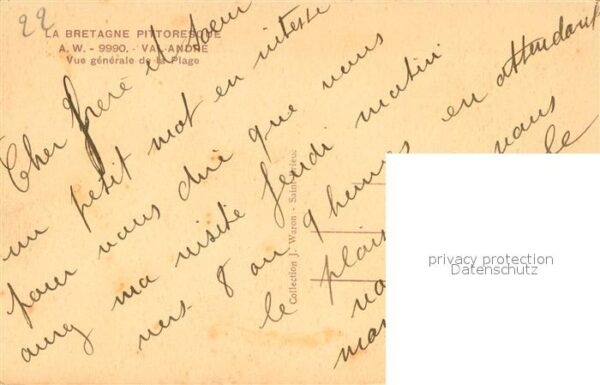 22
LA BRETAGNE PITTORESQUE
A. W. - 9990. - VAL-ANDRÉ
Vue générale de la Plage
Cher frère et soeur
un petit mot en vitesse
pour vous dire que vous
aurez ma visite Jeudi matin
vers 8 ou 9 heures en attendant
le plais vous
le
Collection J. Waron - Saint-Brieuc
privacy protection
Datenschutz